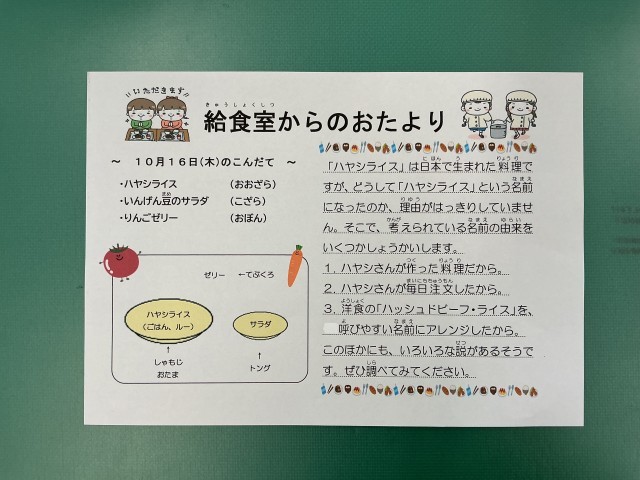 いただきます
給食室からのおたより
きゅうしょくしつ
～ 10月16日(木)のこんだて ～
・ハヤシライス (おおざら)
・いんげん豆のサラダ (こざら)
まめ
・りんごゼリー (おぼん)
ゼリー ←てぶくろ
ハヤシライス
(ごはん、ルー)
サラダ
↑
しゃもじ
おたま
↑
トング
「ハヤシライス」は日本で生まれた料理で
にほん う りょうり
すが、どうして「ハヤシライス」という名前
なまえ
になったのか、理由がはっきりしていませ
りゆう
ん。そこで、考えられている名前の由来を
かんが なまえ ゆらい
いくつかしょうかいします。
1. ハヤシさんが作った料理だから。
つく りょうり
2. ハヤシさんが毎日注文したから。
まいにちちゅうもん
3. 洋食の「ハッシュドビーフ・ライス」を、
ようしょく
呼びやすい名前にアレンジしたから。
よ なまえ
このほかにも、いろいろな説があるそうで
せつ
す。ぜひ調べてみてください。
しら